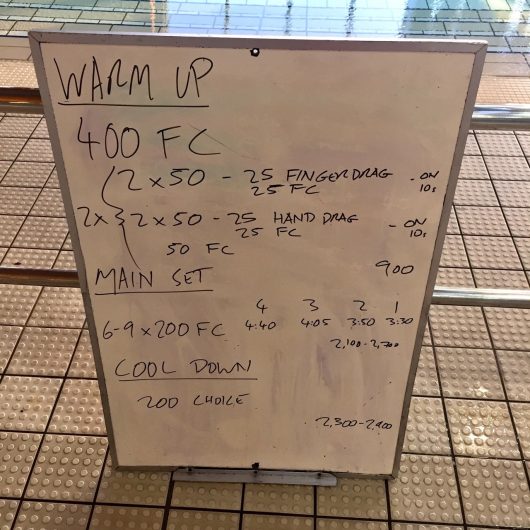 WARM UP
400 FC
2x50 - 25 FINGERDRAG - ON
25 FC 10s
2x 2x50 - 25 HAND DRAG - ON
25 FC 10s
50 FC
900
MAIN SET
4 3 2 1
6-9x200 FC 4:40 4:05 3:50 3:30
2,100-2,700
COOL DOWN
200 CHOICE
2,300-2,900